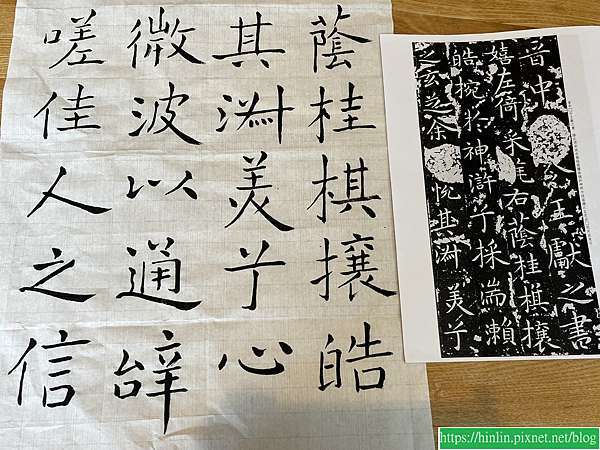 蔭桂棋攘皓
其淵美兮心
微波以通辭
嗟佳人之信
晉中令王獻之書
嬉左倚采旄右蔭桂棋攘
皓捥於神滸兮採湍瀨
之玄芝余悅其淵美兮
https://hinlin.pixnet.net/blog